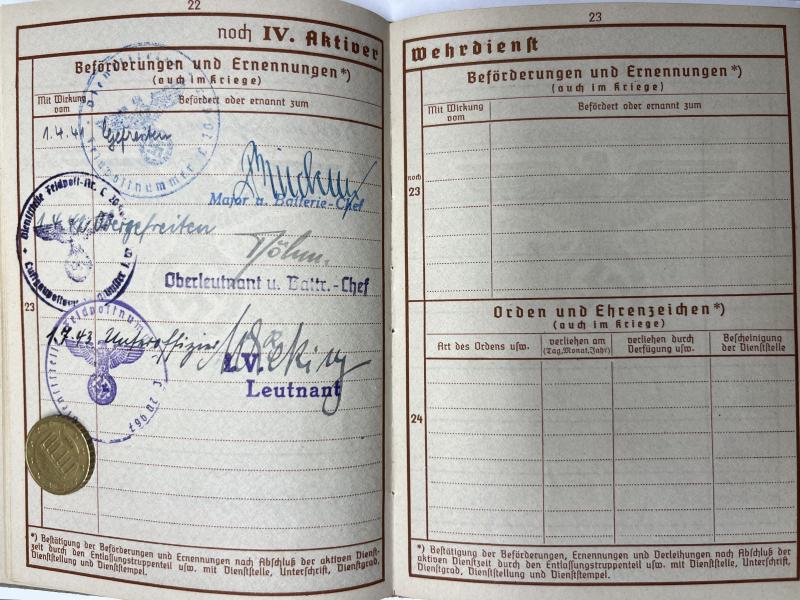 22
noch IV. Aktiver
Beförderungen und Ernennungen*)
(auch im Kriege)
Mit Wirkung vom
Befördert oder ernannt zum
1.4.41 Gefreiten
Major u. Batterie-Chef
Obergefreiten
Böhm
Oberleutnant u. Battr.-Chef
23
1.7.43 Unteroffizier
I.V.
Leutnant
*) Bestätigung der Beförderungen und Ernennungen nach Abschluß der aktiven Dienst-
zeit durch den Entlassungstruppenteil usw. mit Dienststelle, Unterschrift, Dienstgrad,
Dienststellung und Dienststempel.
23
Wehrdienst
Beförderungen und Ernennungen*)
(auch im Kriege)
Mit Wirkung vom
Befördert oder ernannt zum
noch
23
Orden und Ehrenzeichen*)
(auch im Kriege)
Art des Ordens usw.
verliehen am
(Tag, Monat, Jahr)
verliehen durch
Verfügung usw.
Bescheinigung
der Dienststelle
24
*) Bestätigung der Beförderungen, Ernennungen und Verleihungen nach Abschluß der
aktiven Dienstzeit durch den Entlassungstruppenteil usw. mit Dienststelle, Unterschrift,
Dienstgrad, Dienststellung und Dienststempel.